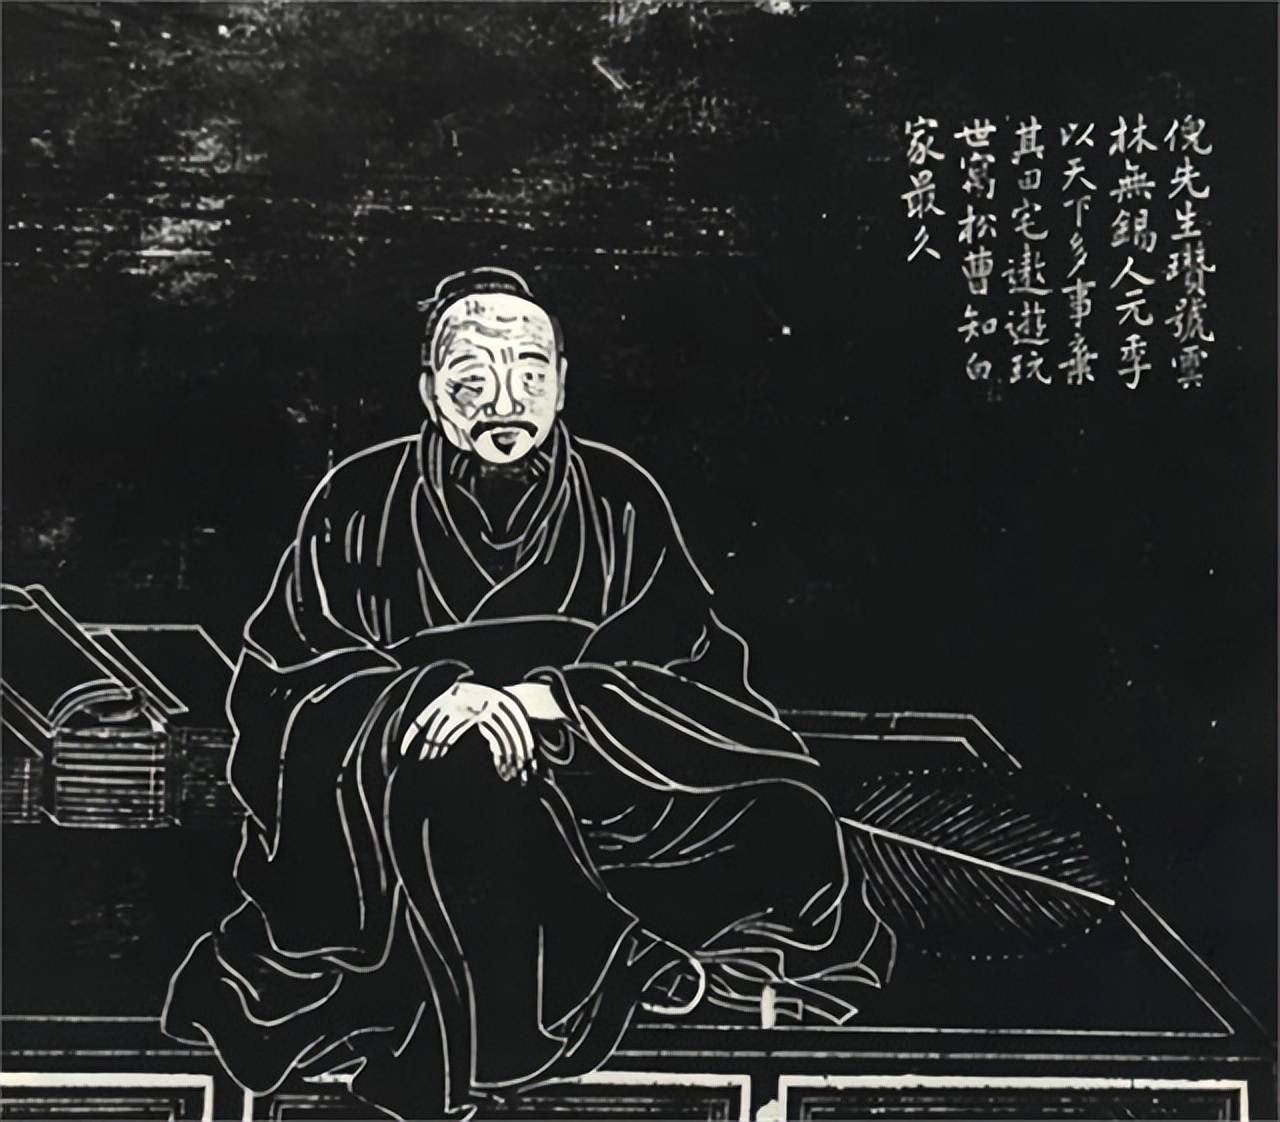 倪先生瓚號雲
林無錫人元季
以天下多事棄
其田宅遨遊玩
世寓松曹知白
家最久